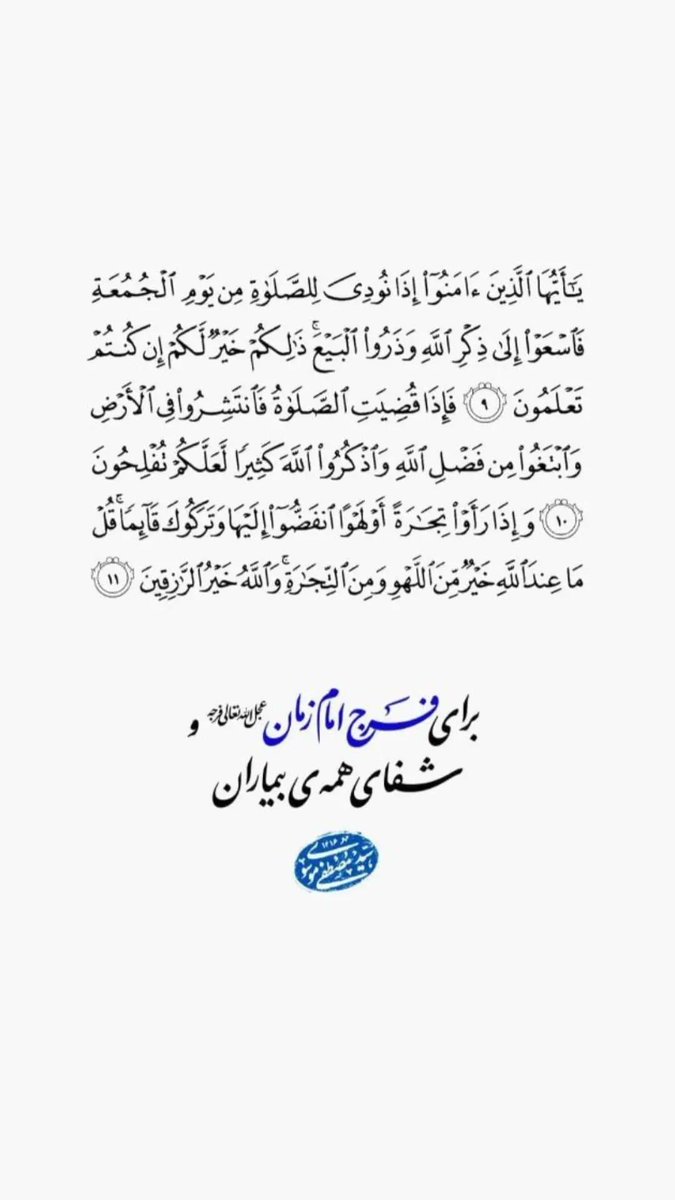 يَـٰٓأَيُّهَا ٱلَّذِينَ ءَامَنُوٓاْ إِذَا نُودِيَ لِلصَّلَوٰةِ مِن يَوْمِ ٱلْجُمُعَةِ
فَٱسْعَوْاْ إِلَىٰ ذِكْرِ ٱللَّهِ وَذَرُواْ ٱلْبَيْعَۚ ذَٰلِكُمْ خَيْرٌ لَّكُمْ إِن كُنتُمْ
تَعْلَمُونَ ٩ فَإِذَا قُضِيَتِ ٱلصَّلَوٰةُ فَٱنتَشِرُواْ فِى ٱلْأَرْضِ
وَٱبْتَغُواْ مِن فَضْلِ ٱللَّهِ وَٱذْكُرُواْ ٱللَّهَ كَثِيرًا لَّعَلَّكُمْ تُفْلِحُونَ
١٠ وَإِذَا رَأَوْاْ تِجَـٰرَةً أَوْ لَهْوًا ٱنفَضُّوٓاْ إِلَيْهَا وَتَرَكُوكَ قَآئِمًاۚ قُلْ
مَا عِندَ ٱللَّهِ خَيْرٌ مِّنَ ٱللَّهْوِ وَمِنَ ٱلتِّجَـٰرَةِۚ وَٱللَّهُ خَيْرُ ٱلرَّٰزِقِينَ ١١
برای فرج امام زمان عجل الله تعالی فرجه و
شفای همه‌ی بیماران
سید مصطفی موسوی